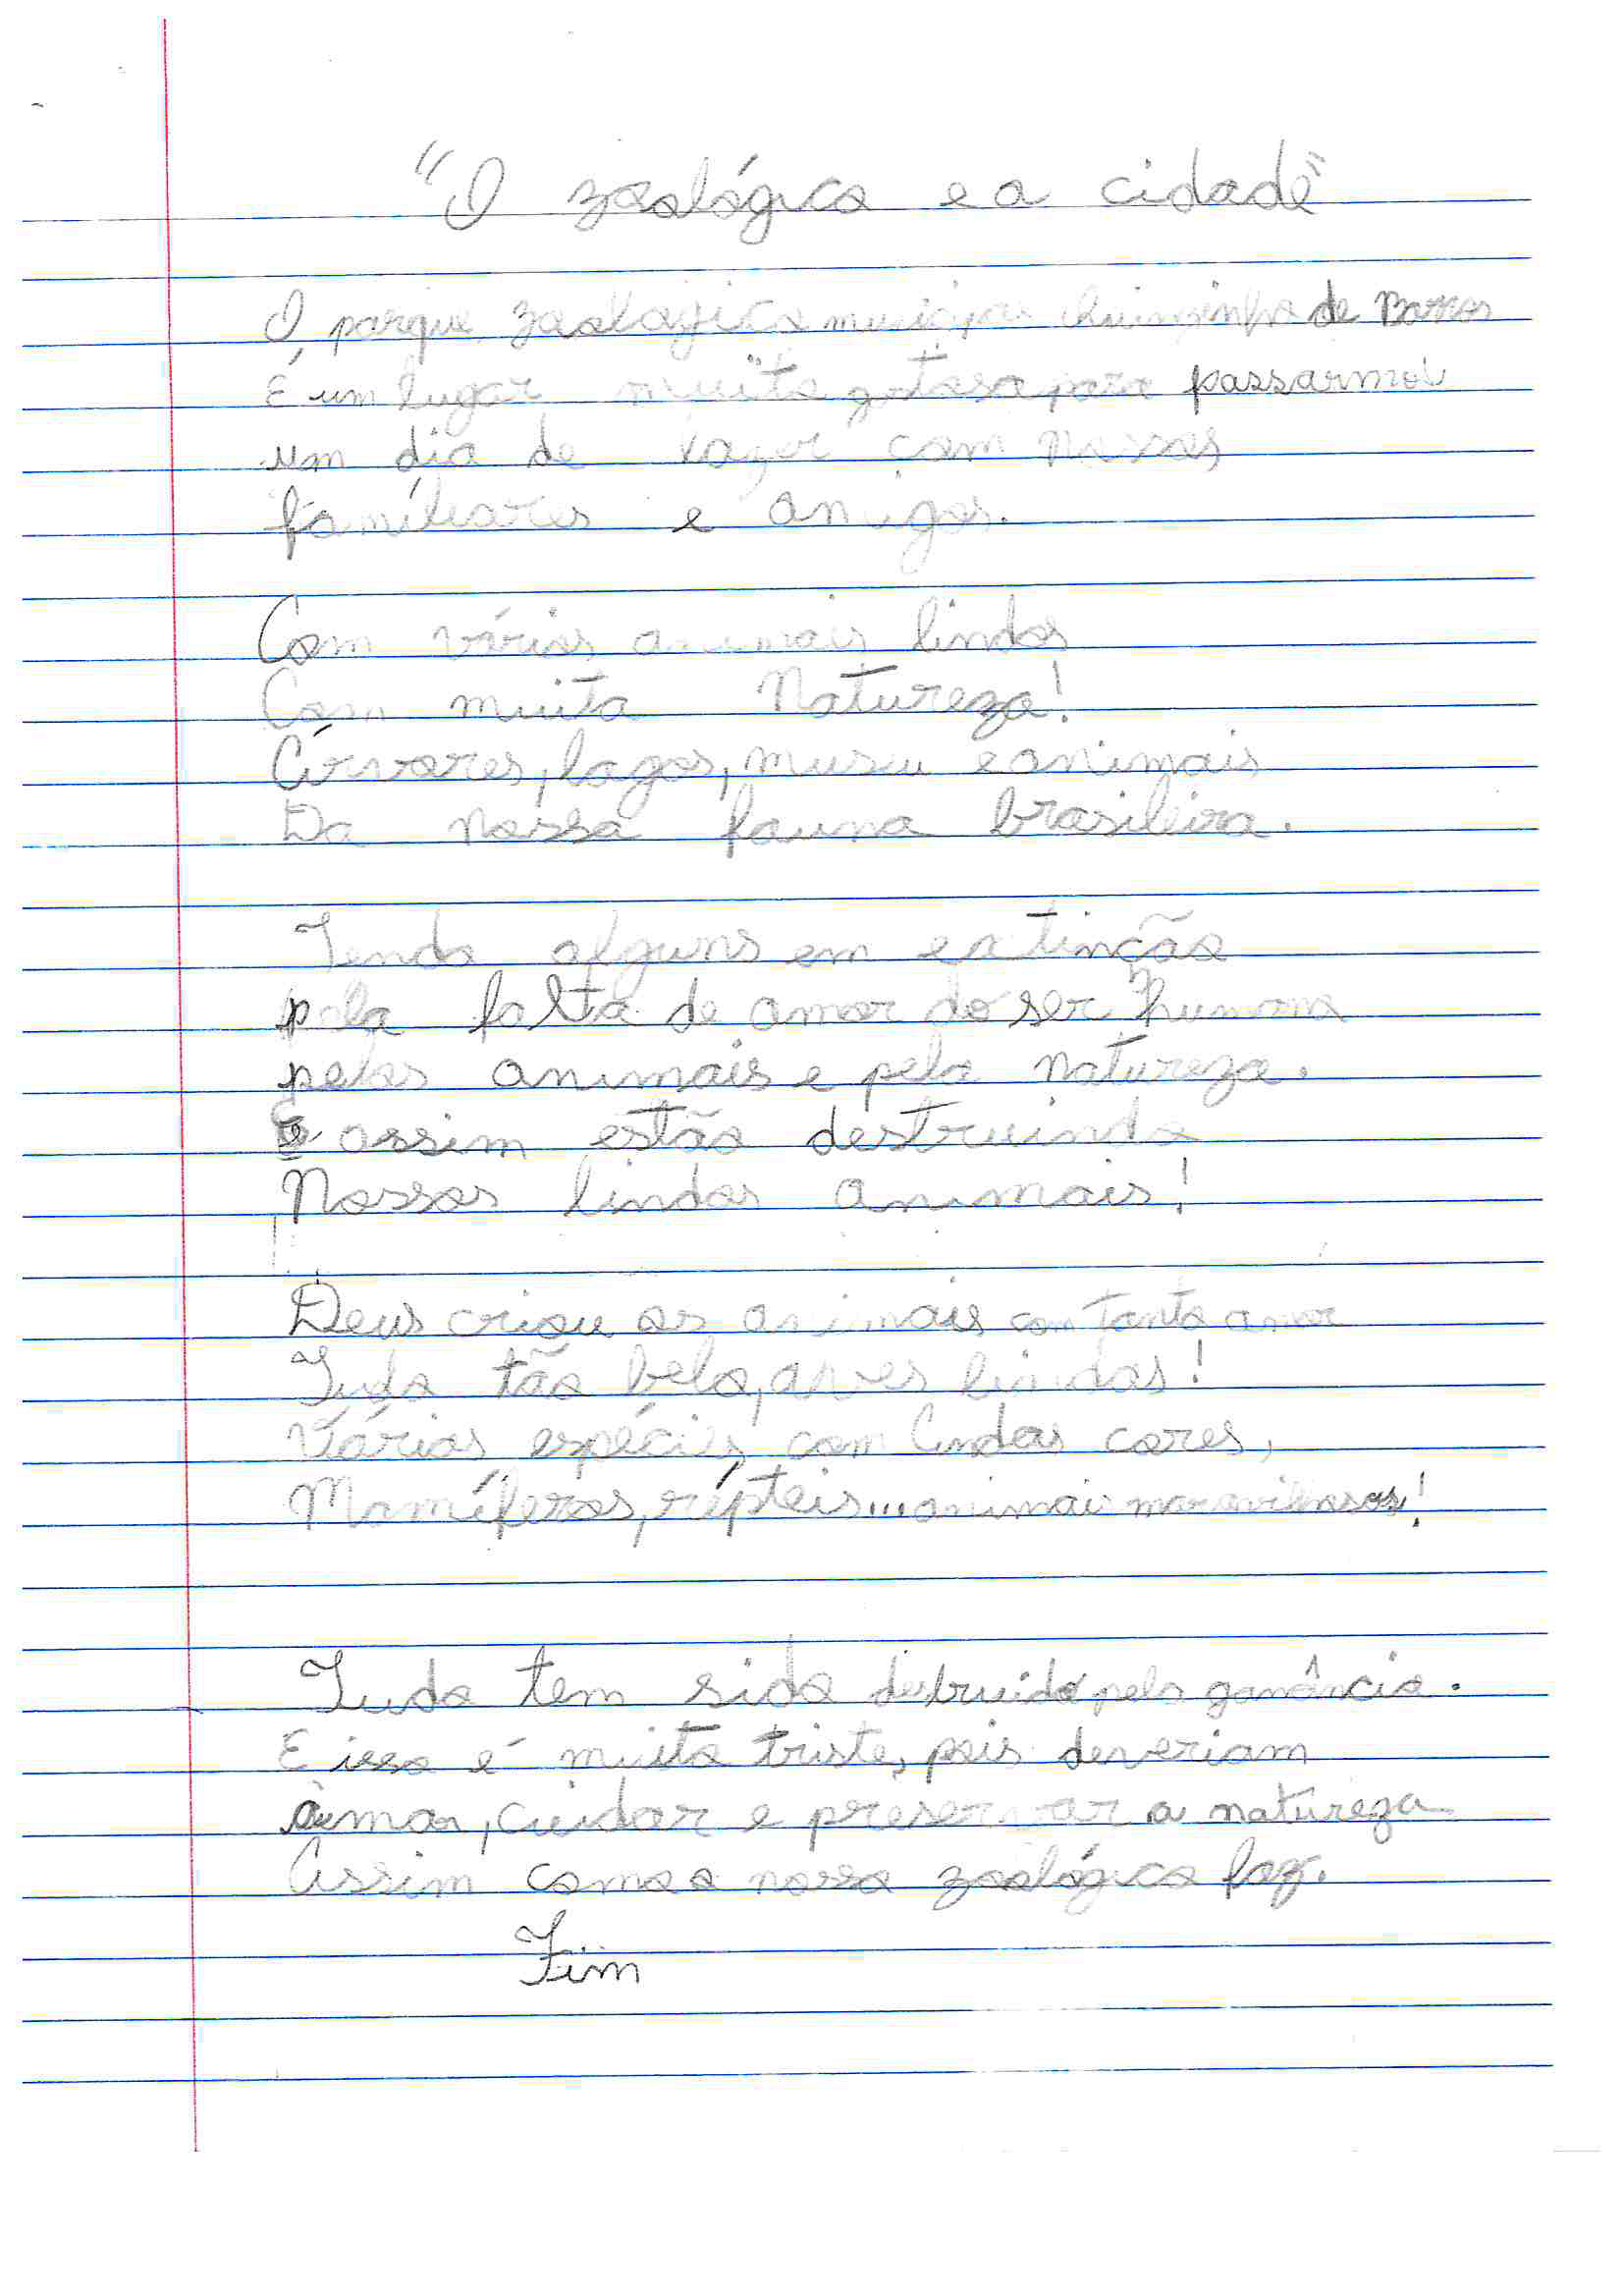 "O zoológico e a cidade"
O parque zoologico municipal Quinzinho de Barros
É um lugar muito gotoso para passarmos
um dia de lazer com Nossos
famíliares e amigos.
Com vários animais lindos
Com muita Natureza!
Árvores, lagos, museu e animais
Da nossa fauna brasileira.
Tendo alguns em extinção
pela falta de amor do ser humano
pelos animais e pela natureza.
E assim estão destruindo
Nossos lindos animais!
Deus criou os animais com tanto amor
Tudo tão belo, aves lindas!
Várias espécies, com lindas cores,
Mamíferos, répteis... animais maravilhosos!
Tudo tem sido destruido pela ganância.
E isso é muito triste, pois deveriam
amar, cuidar e preservar a natureza
Assim como o nosso zoológico faz.
Fim